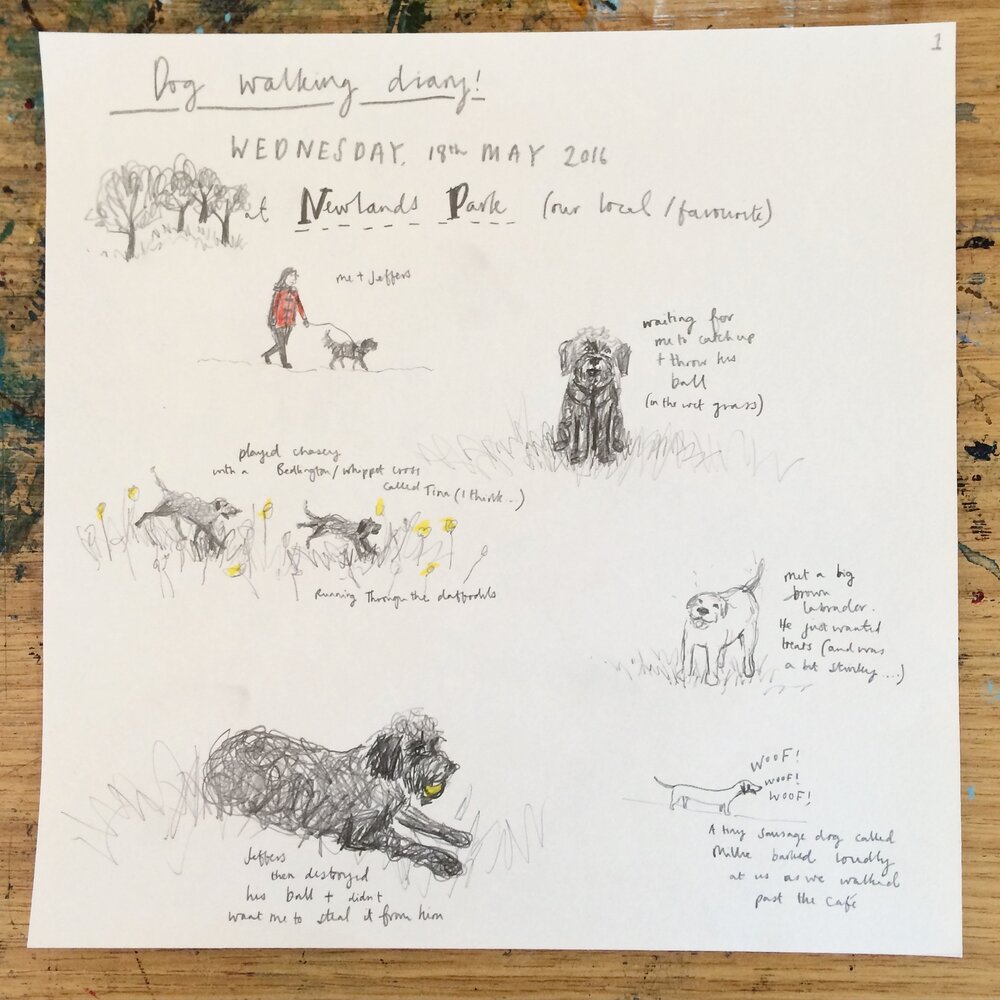 1
Dog walking diary!
WEDNESDAY, 18th MAY 2016
at Newlands Park (our local/favourite)
me + Jeffers
waiting for
me to catch up
+ throw his
ball
(in the wet grass)
played chasey
with a Bedlington/whippet cross
called Tina (I think...)
Running Through the daffodils
met a big
brown
labrador.
He just wanted
treats (and was
a bit stinky...)
WOOF!
WOOF!
WOOF!
A tiny sausage dog called
Millie barked loudly
at us as we walked
past the café
Jeffers
then destroyed
his ball + didn't
want me to steal it from him